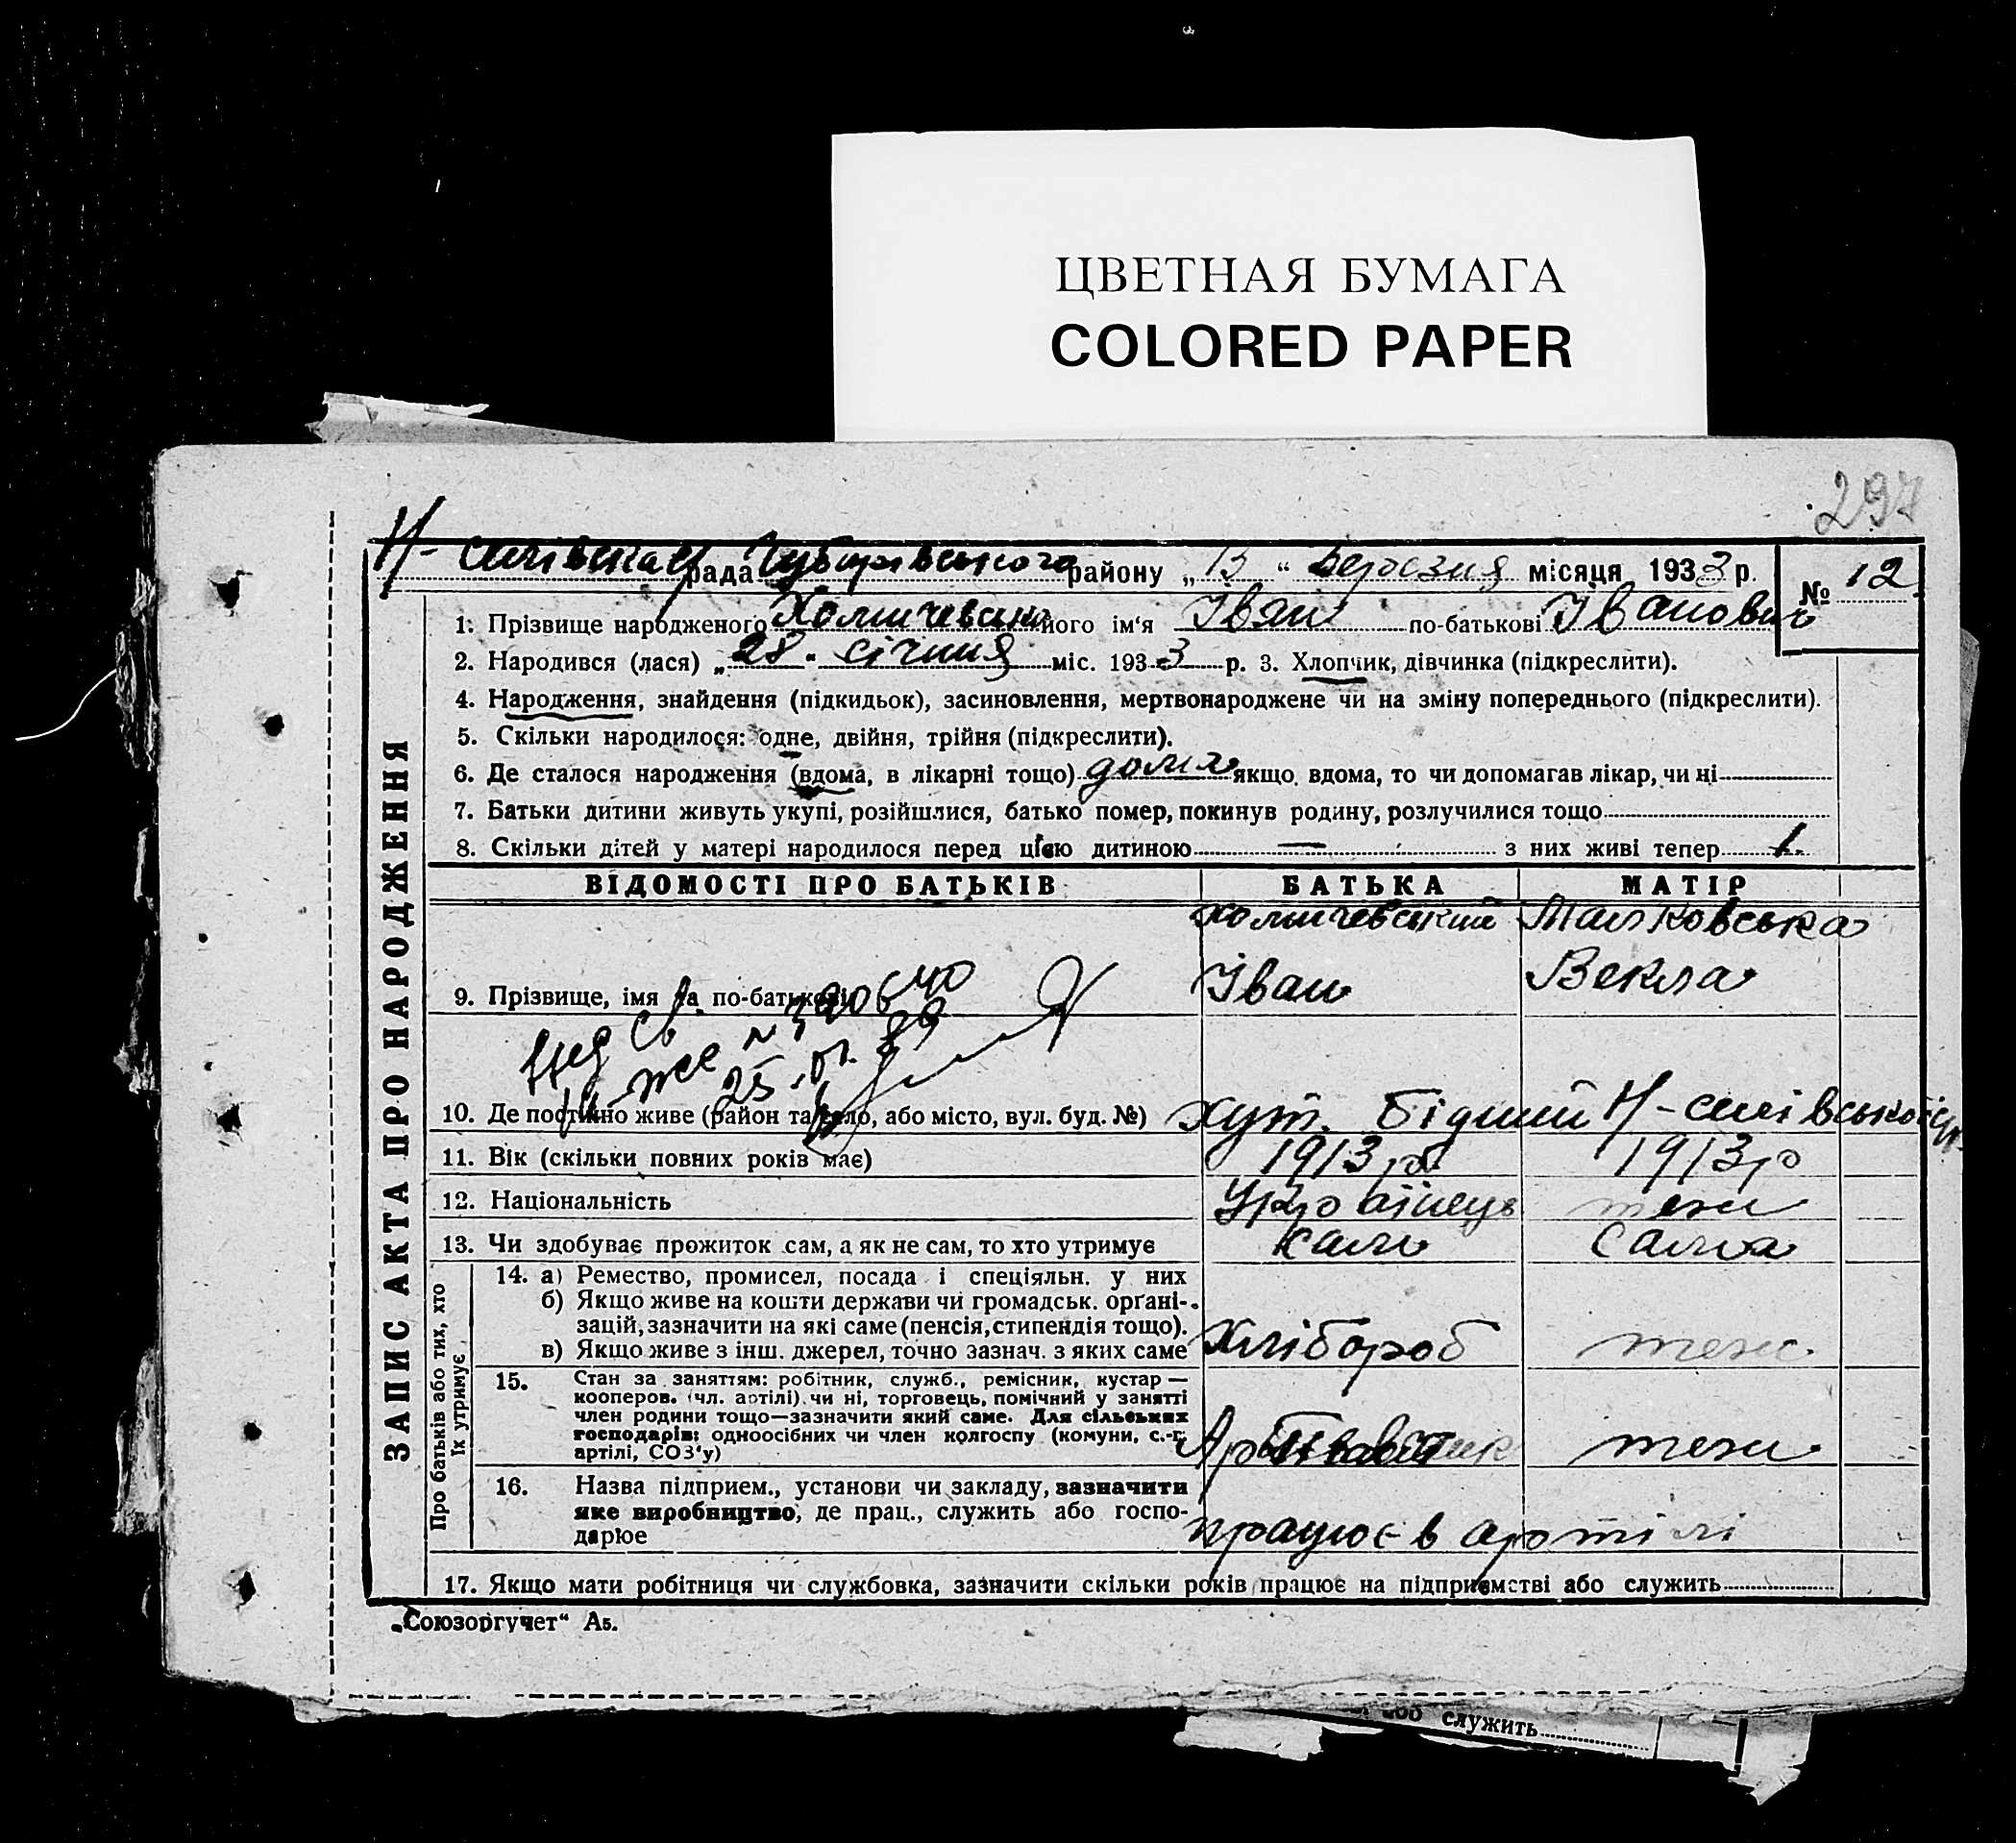 ЦВЕТНАЯ БУМАГА
COLORED PAPER
297
рада району „13“ Березня місяця 1933 р. № 12
1. Прізвище народженого його ім‘я Іван по-батькові Іванович
2. Народився (лася) „28“ січня міс. 1933 р. 3. Хлопчик, дівчинка (підкреслити).
4. Народження, знайдення (підкидьок), засиновлення, мертвонароджене чи на зміну попереднього (підкреслити).
5. Скільки народилося: одне, двійня, трійня (підкреслити).
6. Де сталося народження (вдома, в лікарні тощо) дома якщо вдома, то чи допомагав лікар, чи ні
7. Батьки дитини живуть укупі, розійшлися, батько помер, покинув родину, розлучилися тощо
8. Скільки дітей у матері народилося перед цією дитиною — з них живі тепер 1
ВІДОМОСТІ ПРО БАТЬКІВ БАТЬКА МАТІР
9. Прізвище, імя та по-батькові Іван Векла
10. Де постійно живе (район та село, або місто, вул. буд. №) хут. Бідний
11. Вік (скільки повних років має) 1913 р 1913 р
12. Національність Українець теж
13. Чи здобуває прожиток сам, а як не сам, то хто утримує сам сама
14. а) Ремество, промисел, посада і спеціяльн. у них
б) Якщо живе на кошти держави чи громадськ. орґані-
зацій, зазначити на які саме (пенсія, стипендія тощо).
в) Якщо живе з інш. джерел, точно зазнач. з яких саме Хлібороб теж
15. Стан за заняттям: робітник, служб., ремісник, кустар —
кооперов. (чл. артілі) чи ні, торговець, помічний у занятті
член родини тощо—зазначити який саме. Для сільських
господарів: одноосібних чи член колгоспу (комуни, с.-г.
артілі, СОЗ‘у) теж
16. Назва підприєм., установи чи закладу, зазначити
яке виробництво, де прац., служить або госпо-
дарює працює в артілі
17. Якщо мати робітниця чи службовка, зазначити скільки років працює на підприємстві або служить
ЗАПИС АКТА ПРО НАРОДЖЕННЯ
Про батьків або тих, хто
їх утримує
„Союзоргучет“ А5.
або служить